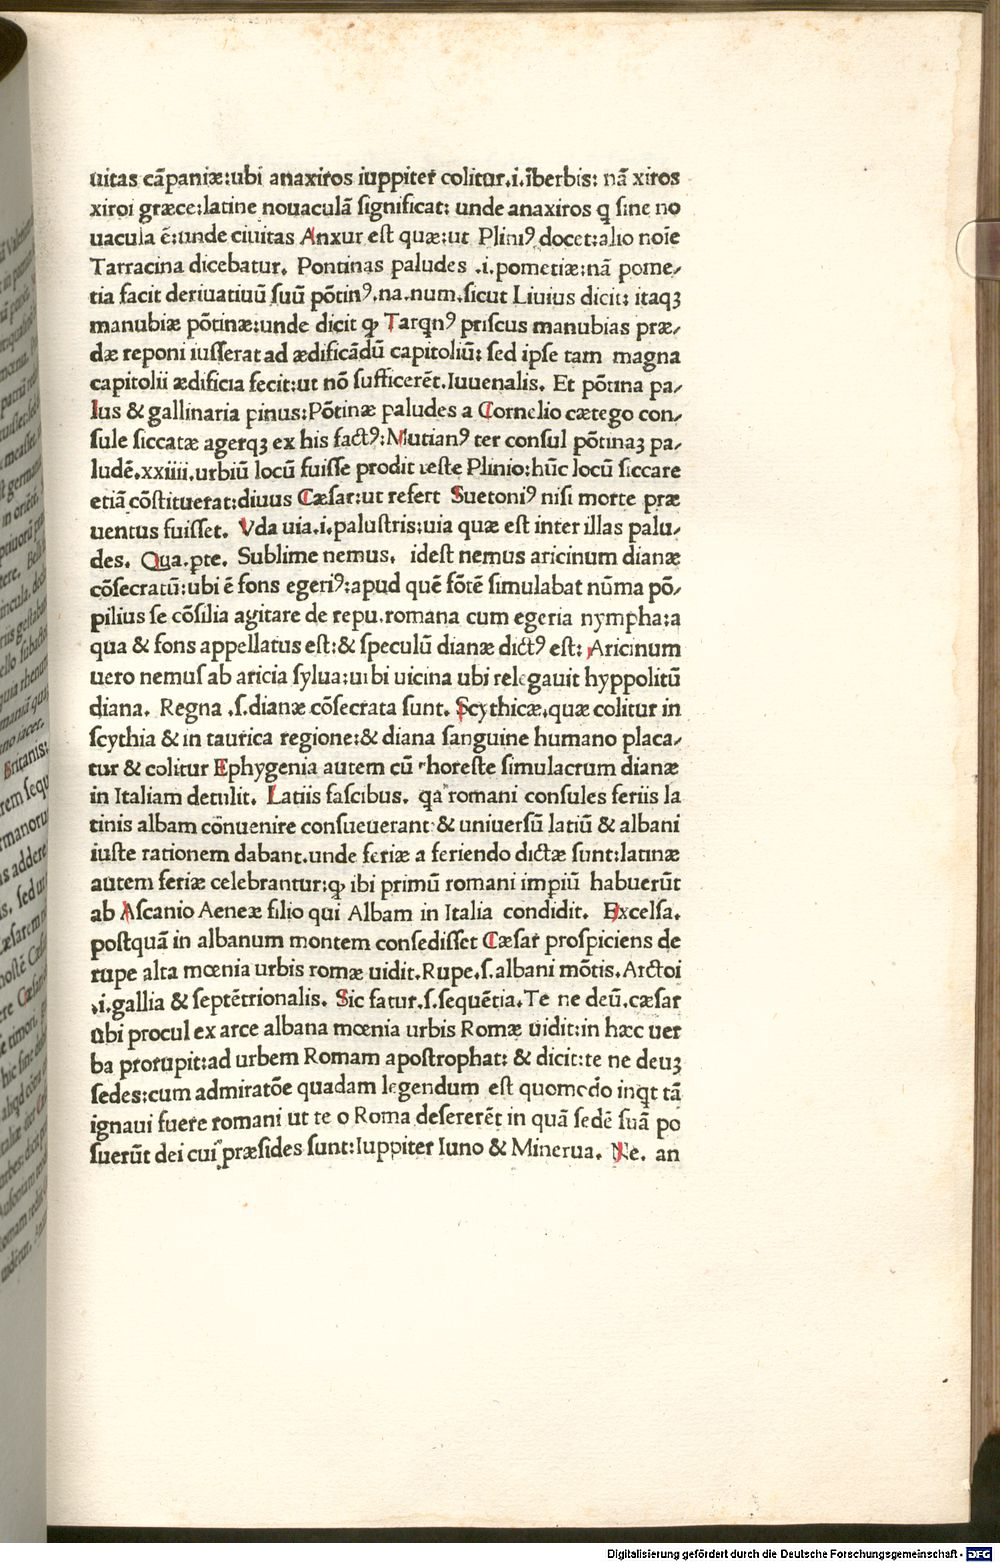 uitas cãpaniæ:ubi anaxiros iuppiter colitur.i.ĩberbis: nã xiros
xiroi græce:latine nouaculã ſignificat: unde anaxiros ꝗ ſine no
uacula ẽ:unde ciuitas Anxur eſt quæ:ut Pliniꝰ docet:alio noĩe
Tarracina dicebatur. Pontinas paludes .i.pometiæ:nã pome/
tia facit deriuatiuũ ſuũ põtinꝰ.na.num.ſicut Liuius dicit: itaqꝫ
manubiæ põtinæ:unde dicit ꝙ Tarꝗnꝰ priſcus manubias præ/
dæ reponi iuſſerat ad ædificãdũ capitoliũ: ſed ipſe tam magna
capitolii ædificia fecit:ut nõ ſufficerẽt.Iuuenalis. Et põtina pa/
lus & gallinaria pinus:Põtinæ paludes a Cornelio cætego con/
ſule ſiccatæ agerqꝫ ex his factꝰ:Mutianꝰ ter conſul põtinaꝫ pa/
ludẽ.xxiiii.urbiũ locũ fuiſſe prodit teſte Plinio:hũc locũ ſiccare
etiã cõſtituerat:diuus Cæſar:ut refert Suetoniꝰ niſi morte præ
uentus fuiſſet. Vda uia.i.paluſtris:uia quæ eſt inter illas palu/
des. Qua.pte. Sublime nemus. ideſt nemus aricinum dianæ
cõſecratũ:ubi ẽ fons egeriꝰ:apud quẽ fõtẽ ſimulabat nũma põ/
pilius ſe cõſilia agitare de repu.romana cum egeria nympha:a
qua & fons appellatus eſt:& ſpeculũ dianæ dictꝰ eſt: Aricinum
uero nemuſ ab aricia ſylua:urbi uicina ubi relegauit hyppolitũ
diana. Regna .ſ.dianæ cõſecrata ſunt. Scythicæ.quæ colitur in
ſcythia & in taurica regione:& diana ſanguine humano placa/
tur & colitur Ephygenia autem cũ horeſte ſimulacrum dianæ
in Italiam detulit. Latiis faſcibus. qa romani conſules feriis la
tinis albam cõnuenire conſueuerant & uniuerſũ latiũ & albani
iuſte rationem dabant.unde feriæ a feriendo dictæ ſunt:latinæ
autem feriæ celebrantur:ꝙ ibi primũ romani impiũ habuerũt
ab Aſcanio Aeneæ filio qui Albam in Italia condidit. Excelſa.
poſtquã in albanum montem conſediſſet Cæſar proſpiciens de
rupe alta mœnia urbis romæ uidit.Rupe.ſ.albani mõtis.Arctoi
.i.gallia & ſeptẽtrionalis. Sic fatur.ſ.ſequẽtia.Te ne deũ.cæſar
ubi procul ex arce albana mœnia urbis Romæ uidit:in hæc uer
ba prorupit:ad urbem Romam apoſtrophat: & dicit:te ne deuꝫ
ſedes:cum admiratõe quadam legendum eſt quomodo inꝗt tã
ignaui fuere romani ut te o Roma deſererẽt in quã ſedẽ ſuã po
ſuerũt dei cui præſides ſunt:Iuppiter Iuno & Minerua. Ne. an
Digitalisierung gefördert durch die Deutsche Forschungsgemeinschaft - DFG